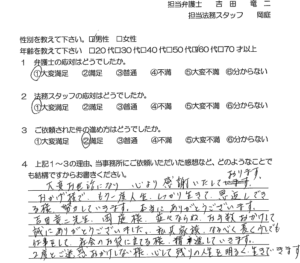 担当弁護士 吉田 竜二
担当法務スタッフ 岡庭
性別を教えて下さい。 ☑男性 □女性
年齢を教えて下さい □20代□30代□40代□50代☑60代□70才以上
1 弁護士の応対はどうでしたか。
①大変満足 ②満足 ③普通 ④不満 ⑤大変不満 ⑥分からない
2 法務スタッフの応対はどうでしたか。
①大変満足 ②満足 ③普通 ④不満 ⑤大変不満 ⑥分からない
3 ご依頼された件の進め方はどうでしたか。
①大変満足 ②満足 ③普通 ④不満 ⑤大変不満 ⑥分からない
4 上記1～3の理由、当事務所にご依頼いただいた感想など、どのようなことでも
結構ですからお書きください。
おります。
大変お世話になり 心より感謝いたして
おかげ様で、もう一度人生、しっかり生きて 恩返しでき
る様 努力していきます。本当にありがとうございます。
吉田竜二先生、岡庭様、お手数おかけして
誠にありがとうございました。
仕事をして、社会のお役に立てる様 精進していきます。
2度とご迷惑おかけしない様 心して残りの人生を明るく生きていきます